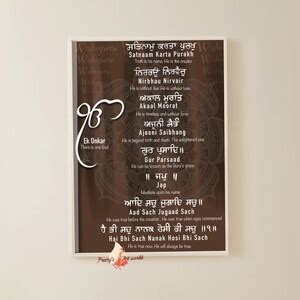 ੴ
Ek Onkar
There is one God
ਸਤਿਨਾਮੁ ਕਰਤਾ ਪੁਰਖੁ
Satnaam Karta Purakh
ਨਿਰਭਉ ਨਿਰਵੈਰੁ
Nirbhau Nirvair
He is without fear He is without hate
ਅਕਾਲ ਮੂਰਤਿ
Akaal Moorat
He is timeless and without form
ਅਜੂਨੀ ਸੈਭੰ
Ajooni Saibhang
He is beyond birth and death, The enlightened one
ਗੁਰ ਪ੍ਰਸਾਦਿ॥
Gur Parsaad
He can be known by the Guru's grace
॥ ਜਪੁ ॥
Jap
Meditate upon his name
ਆਦਿ ਸਚੁ ਜੁਗਾਦਿ ਸਚੁ॥
Aad Sach Jugaad Sach
He was true before the creation, He was true when ages commenced
ਹੈ ਭੀ ਸਚੁ ਨਾਨਕ ਹੋਸੀ ਭੀ ਸਚੁ ॥੧॥
Hai Bhi Sach Nanak Hosi Bhi Sach
He is true now, He will always be true
Art world